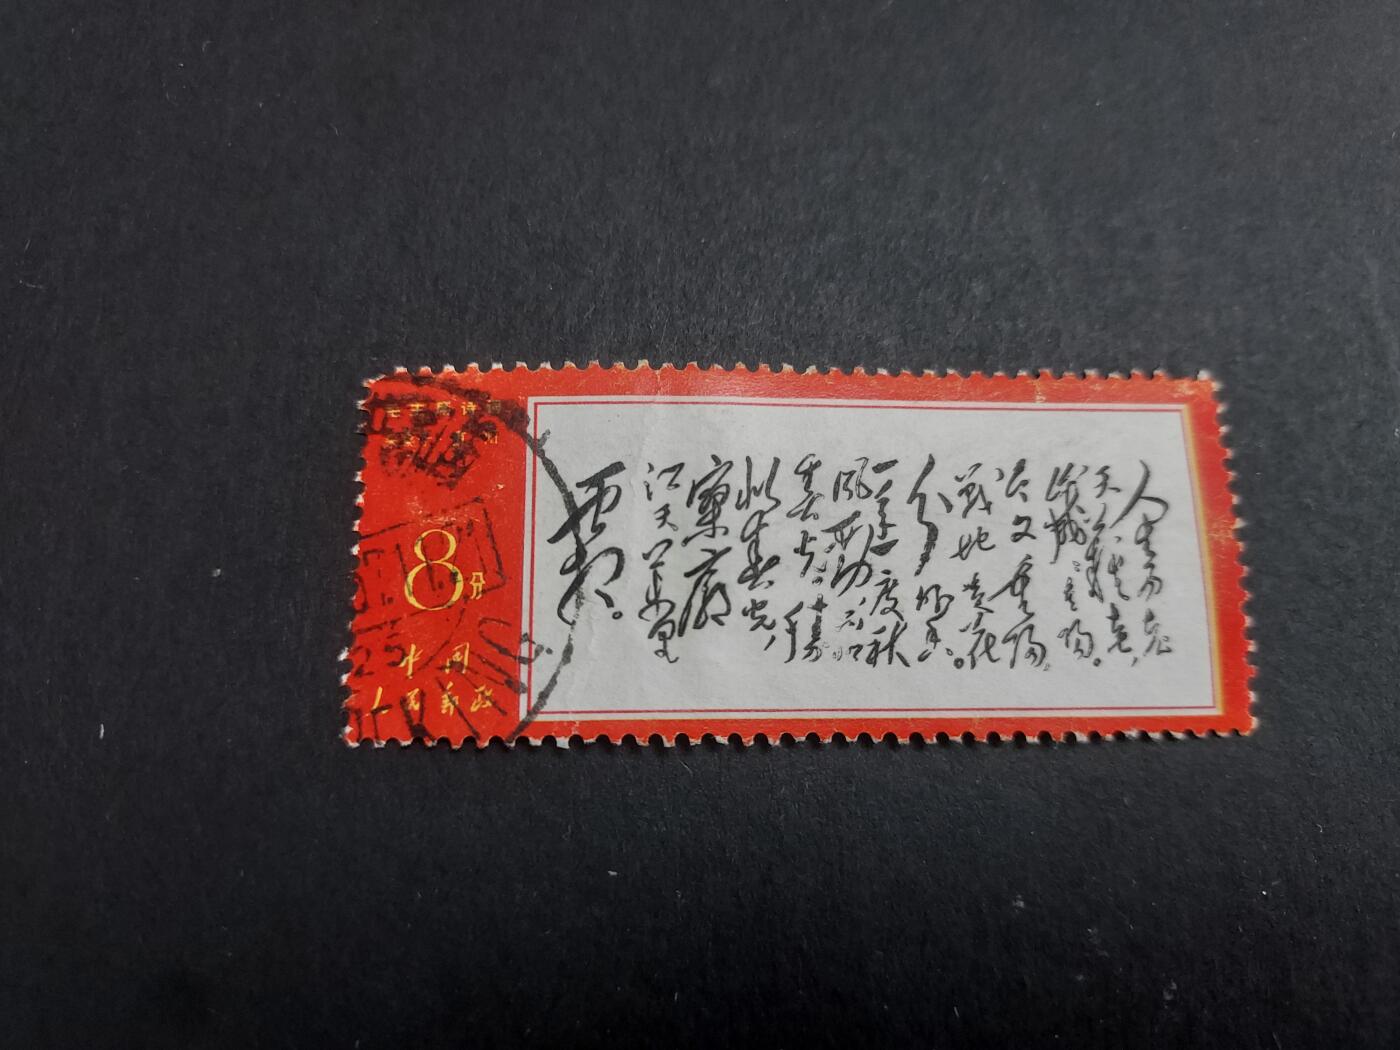 毛主席诗词
8分
中国
人民邮政
人生易老
天難老，
歲歲重陽。
今又重陽，
戰地黄花
分外香。
一年一度秋
風勁，不似
春光。勝
似春光，
寥廓
江天萬里
霜。
25